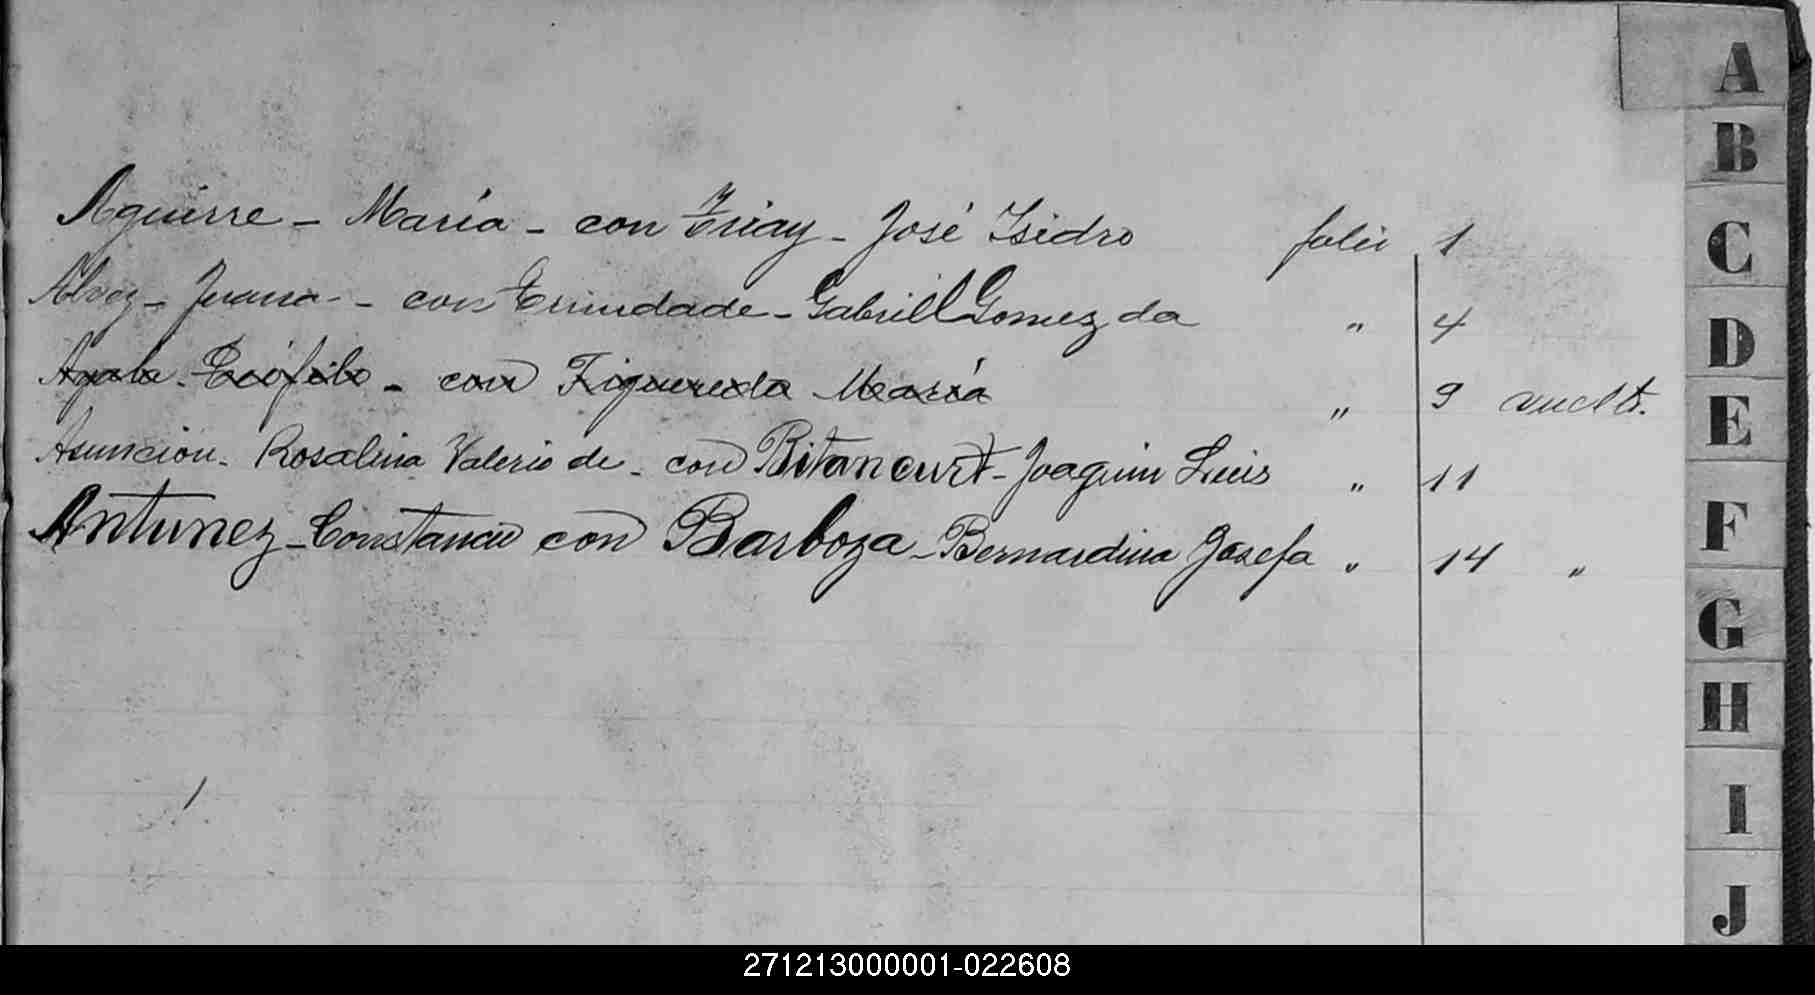 A
B
C
D
E
F
G
H
I
J
Aguirre - María - con Triay - José Isidro folio 1
Alvez - Juana - con Trindade - Gabriell Gomez da " 4
Ayala - Teófilo - con Figueredo María " 9 vuelto.
Asuncion - Rosalina Valerio de - con Bitancurt - Joaquin Luis " 11
Antunez - Constancio con Barboza - Bernardina Josefa " 14 "
271213000001-022608